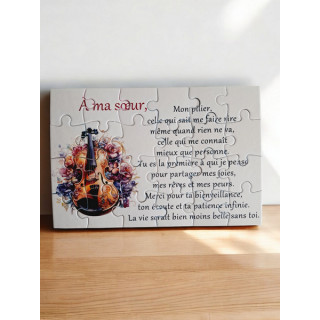 À ma sœur,
Mon pilier,
celle qui sait me faire rire
même quand rien ne va,
celle qui me connaît
mieux que personne.
Tu es la première à qui je pense
pour partager mes joies,
mes rêves et mes peurs.
Merci pour ta bienveillance,
ton écoute et ta patience infinie.
La vie serait bien moins belle sans toi.